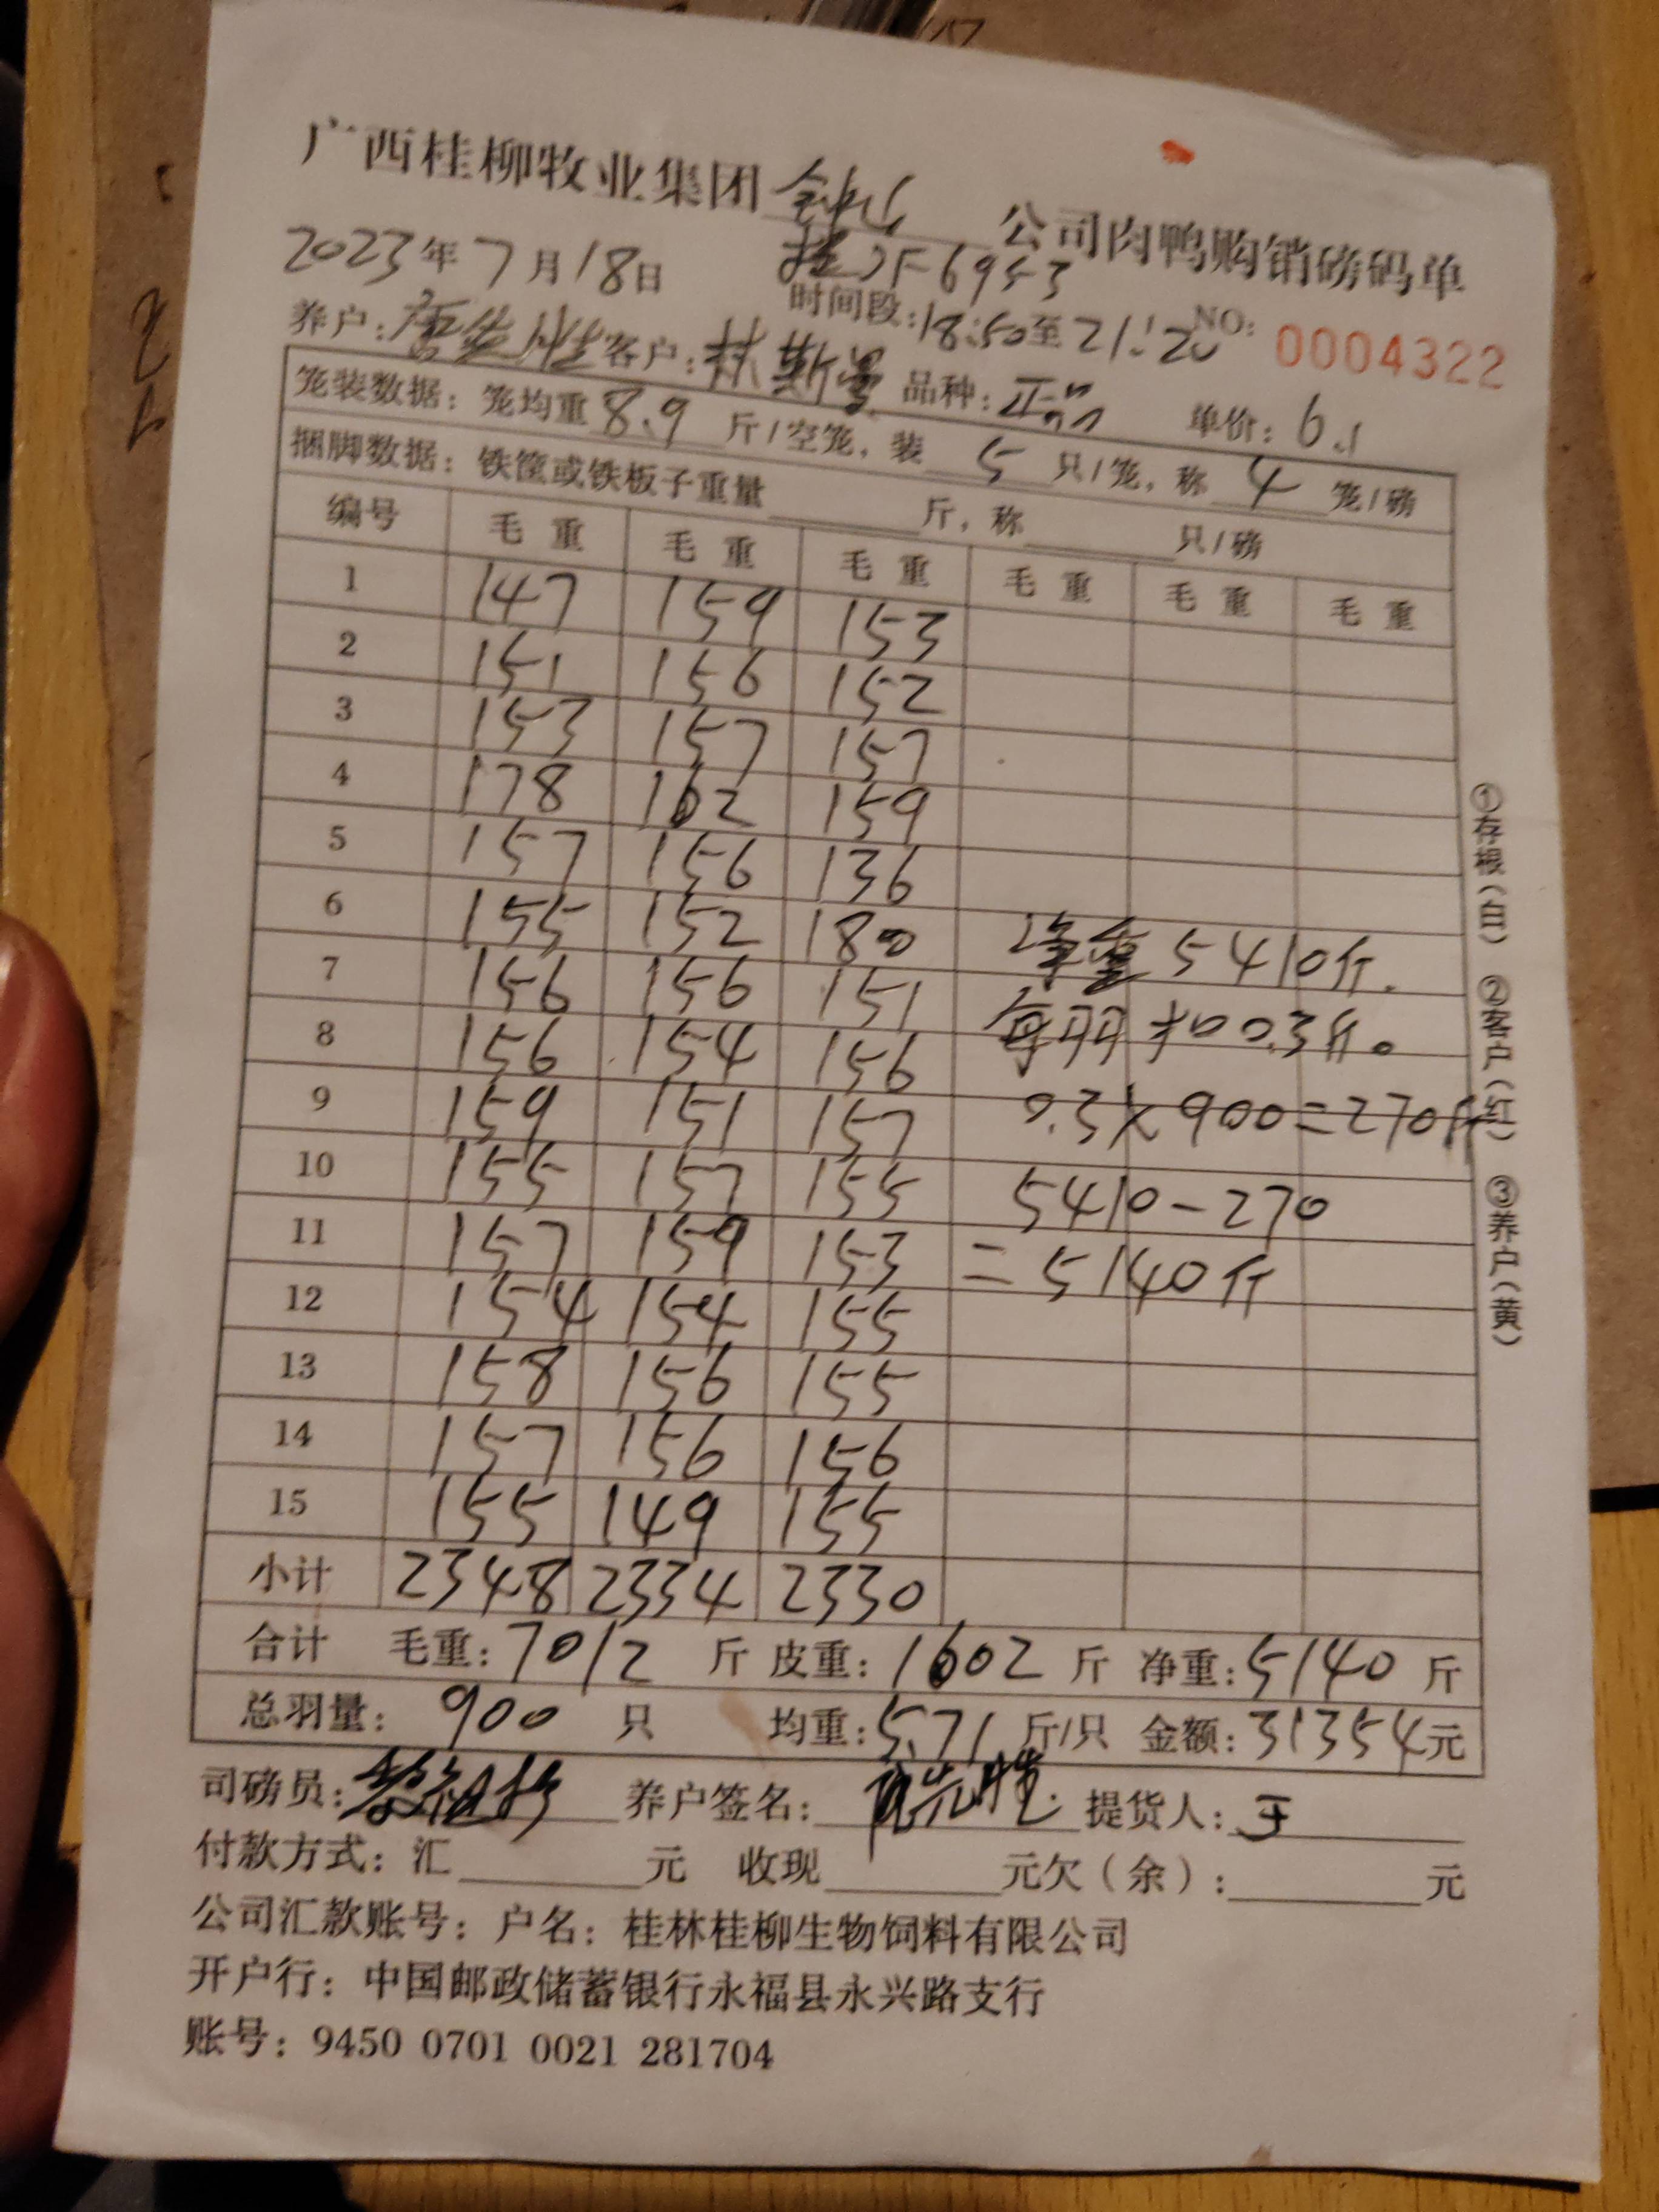 广西桂柳牧业集团 钟山 公司肉鸭购销磅码单
2023年7月18日 桂JF6953
时间段:18:50至21:20 NO: 0004322
养户: 客户:林斯 品种:正品 单价:6.1
笼装数据:笼均重8.9斤/空笼,装5只/笼,称4笼/磅
捆脚数据:铁筐或铁板子重量 斤,称 只/磅
编号 毛重 毛重 毛重 毛重 毛重 毛重
1 147 159 153
2 151 156 152
3 153 157 157
4 178 162 159
5 157 156 136
6 155 152 180 净重5410斤.
7 156 156 151 每羽扣0.3斤。
8 156 154 156
9 159 151 157 0.3×900=270斤
10 155 157 155 5410-270
11 157 159 153 =5140斤
12 154 154 155
13 158 156 155
14 157 156 156
15 155 149 155
小计 2348 2334 2330
合计 毛重:7012斤 皮重:1602斤 净重:5140斤
总羽量:900只 均重:5.71斤/只 金额:31354元
司磅员: 养户签名: 提货人:
付款方式:汇 元 收现 元欠(余): 元
公司汇款账号:户名:桂林桂柳生物饲料有限公司
开户行:中国邮政储蓄银行永福县永兴路支行
账号:9450 0701 0021 281704
①存根(白) ②客户(红) ③养户(黄)